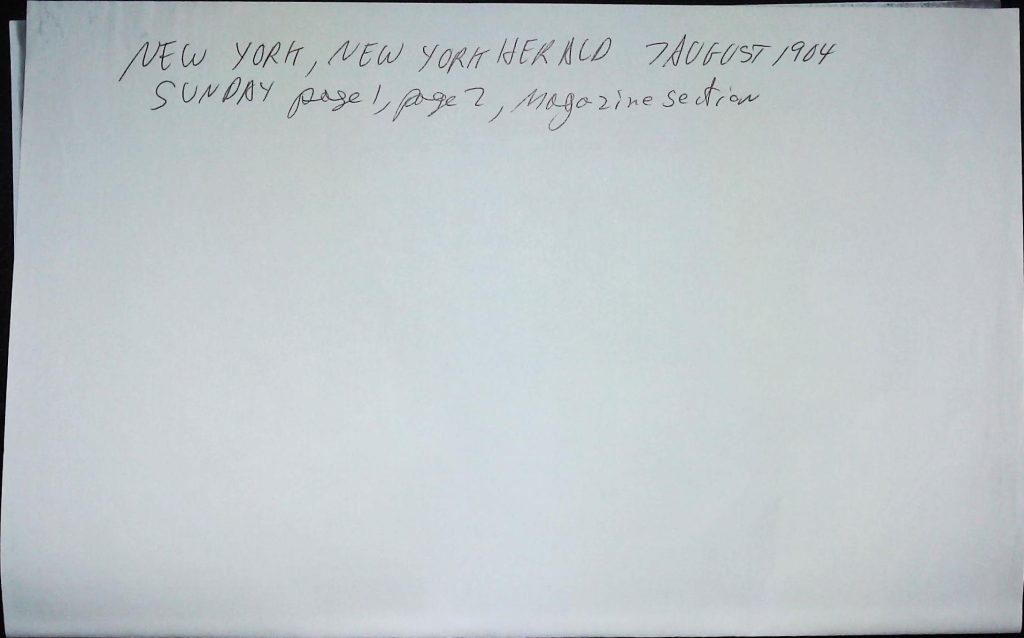 NEW YORK, NEW YORK HERALD 7 AUGUST 1904
SUNDAY page 1, page 2, Magazine section